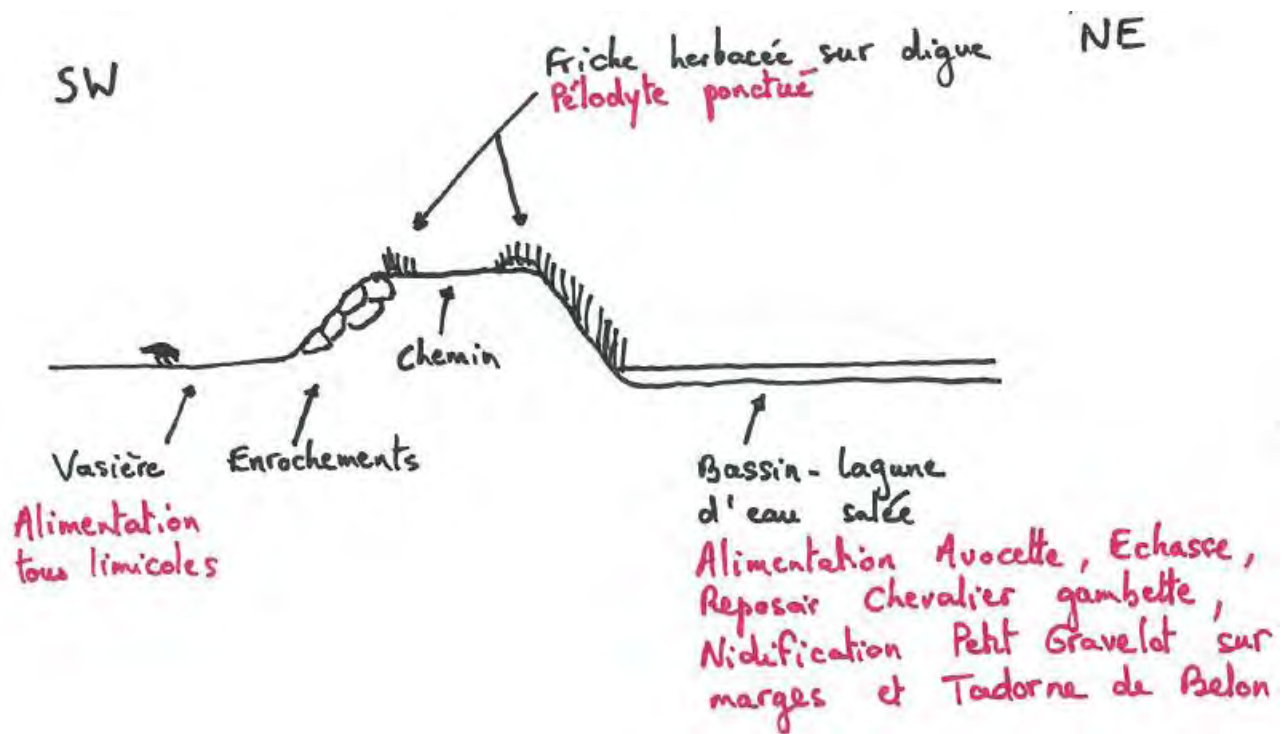 SW
NE
Friche herbacée sur digue
Pélodyte ponctué
Chemin
Vasière
Enrochements
Alimentation
tous limicoles
Bassin-lagune
d'eau salée
Alimentation Avocette, Echasse,
Reposoir Chevalier gambette,
Nidification Petit Gravelot sur
marges et Tadorne de Belon